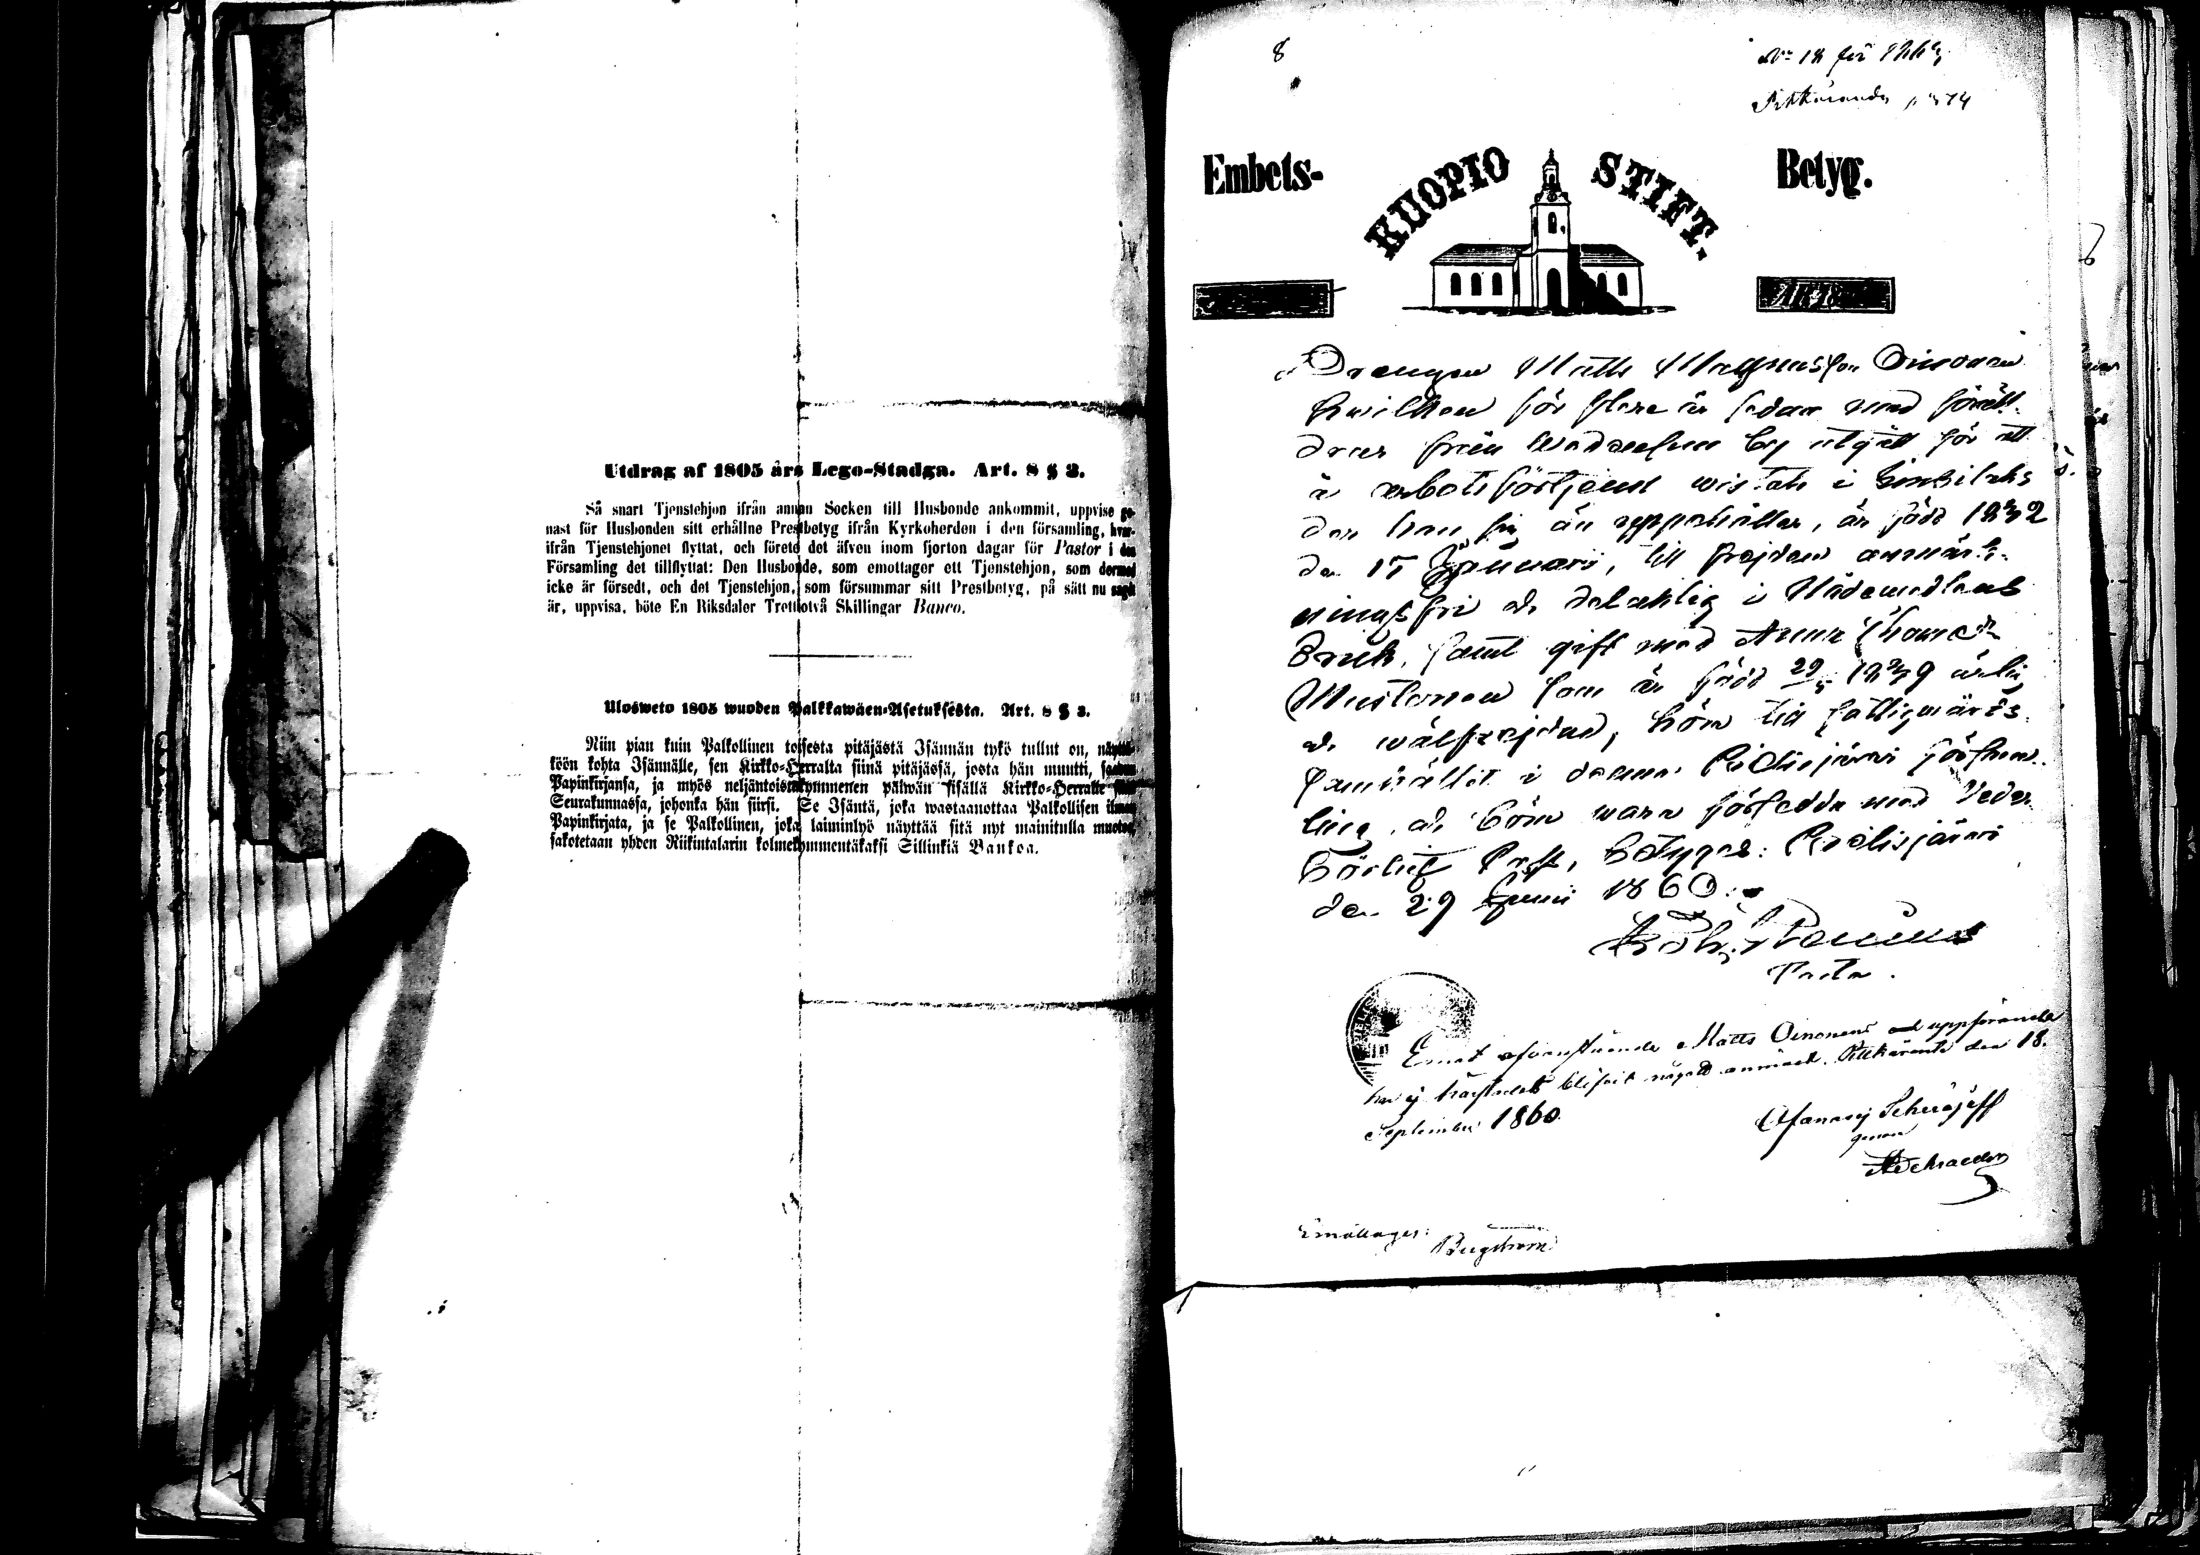 Utdrag af 1805 års Lego-Stadga. Art. 8 § 3.
Så snart Tjenstehjon ifrån annan Socken till Husbonde ankommit, uppvise ge-
nast för Husbonden sitt erhållne Prestbetyg ifrån Kyrkoherden i den församling, hvar-
ifrån Tjenstehjonet flyttat, och förete det äfven inom fjorton dagar för Pastor i den
Församling det tillflyttat: Den Husbonde, som emottager ett Tjenstehjon, som dermed
icke är försedt, och det Tjenstehjon, som försummar sitt Prestbetyg, på sätt nu sagdt
är, uppvisa, böte En Riksdaler Trettiotvå Skillingar Banco.
Ulosweto 1805 wuoden Palkkawäen-Asetuksesta. Art. 8 § 3.
Niin pian kuin Palkollinen toisesta pitäjästä Isännän tykö tullut on, näyttä-
köön kohta Isännälle, sen Kirkko-Herralta siinä pitäjässä, josta hän muutti, saadun
Papinkirjansa, ja myös neljäntoistakymmenen päiwän sisällä Kirkko-Herralle siinä
Seurakunnassa, johonka hän siirsi. Se Isäntä, joka wastaanottaa Palkollisen ilman
Papinkirjata, ja se Palkollinen, joka laiminlyö näyttää sitä nyt mainitulla muotoa,
sakotetaan yhden Riikintalarin kolmekymmentäkaksi Sillinkiä Bankoa.
8
No 18 för
Pitkäranda
Embets- KUOPIO STIFT. Betyg.
Drengen Matts Magnusson Oinonen
hvilken för flere år sedan med föräll-
drar från by utgått för att
å arbetsförtjenst wistats i Impilaks
der han sig än uppehåller, är född 1832
den 15 Januari, till frejden anmärk-
ningsfri och delaktig i Nådemedlens
Bruk, samt gift med Anna Thomædr
Mustonen som är född 1839 ärlig
och wälfrejdad, höra till fattigwårds
samhället i denna Pielisjärvi försam-
ling, och böra wara försedda med Veder-
börligt Pass, betygas: Pielisjärvi
den 29 Juni 1860.
Pastor.
Emot ofvanstående Matts Oinonens uppförande
har ej härstädes blifvit något anmärkt. Pitkäranta den 18.
September 1860
Afanasij
genom
Emottages:
Bergstrom